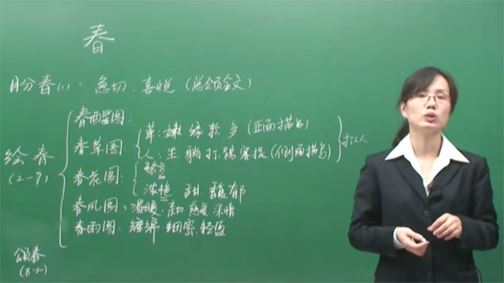 春
盼春(1): 急切、喜悦 (总领全文)
春醒图:
春草图: 草: 嫩 绿 软 多 (正面描写)
人: 坐 躺 打 踢 赛 捉 (侧面描写)
绘春
(2-7)
春花图:
浓艳 甜 馥郁
春风图: 温暖、柔和
春雨图: 缠绵、细密、轻盈
颂春
(8-10)